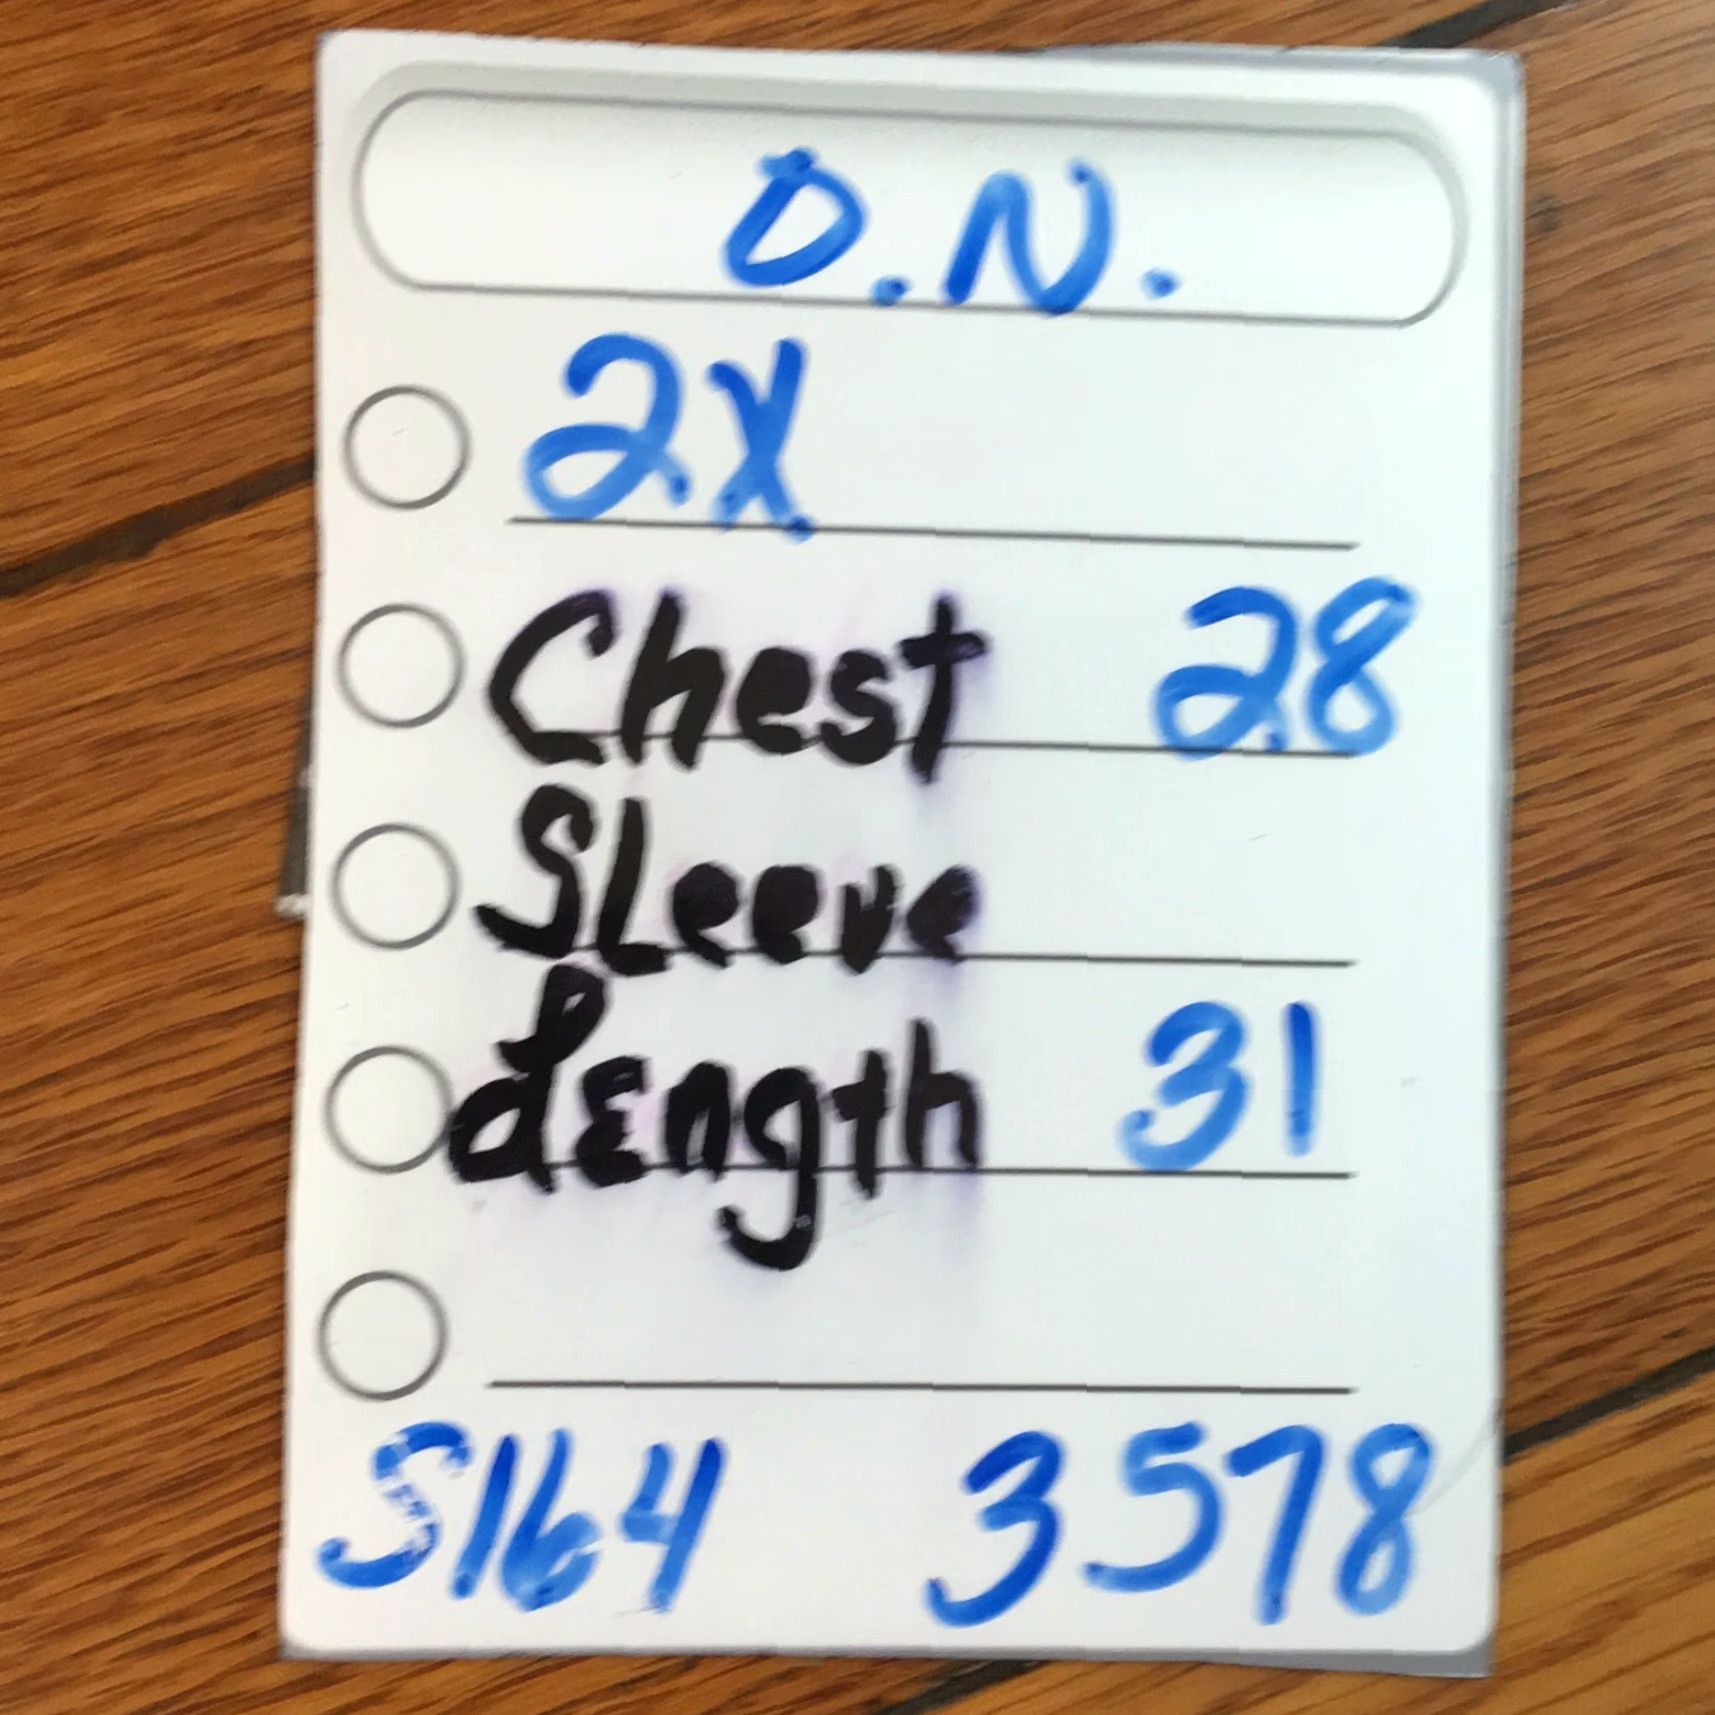 O.N.
2X
Chest 28
SLeeve
Length 31
S164 3578